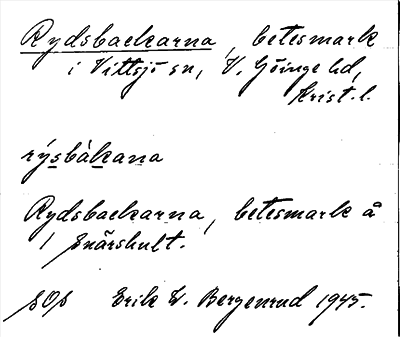 Rydsbackarna, betesmark
i Vittsjö sn, V. Göinge hd,
Krist. l.
rýsbàkana
Rydsbackarna, betesmark å
1 Snärshult.
sOs Erik W. Bergenrud 1945.